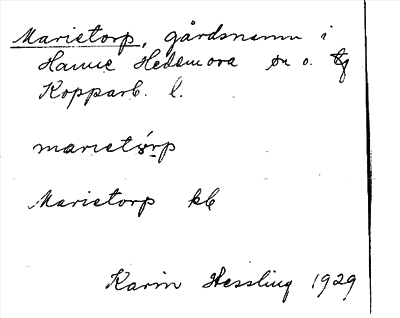 Marietorp, gårdsnamn i
Hamre Hedemora sn o. tg
Kopparb. l.
marietò̜rp
Marietorp kb
Karin Hessling 1929